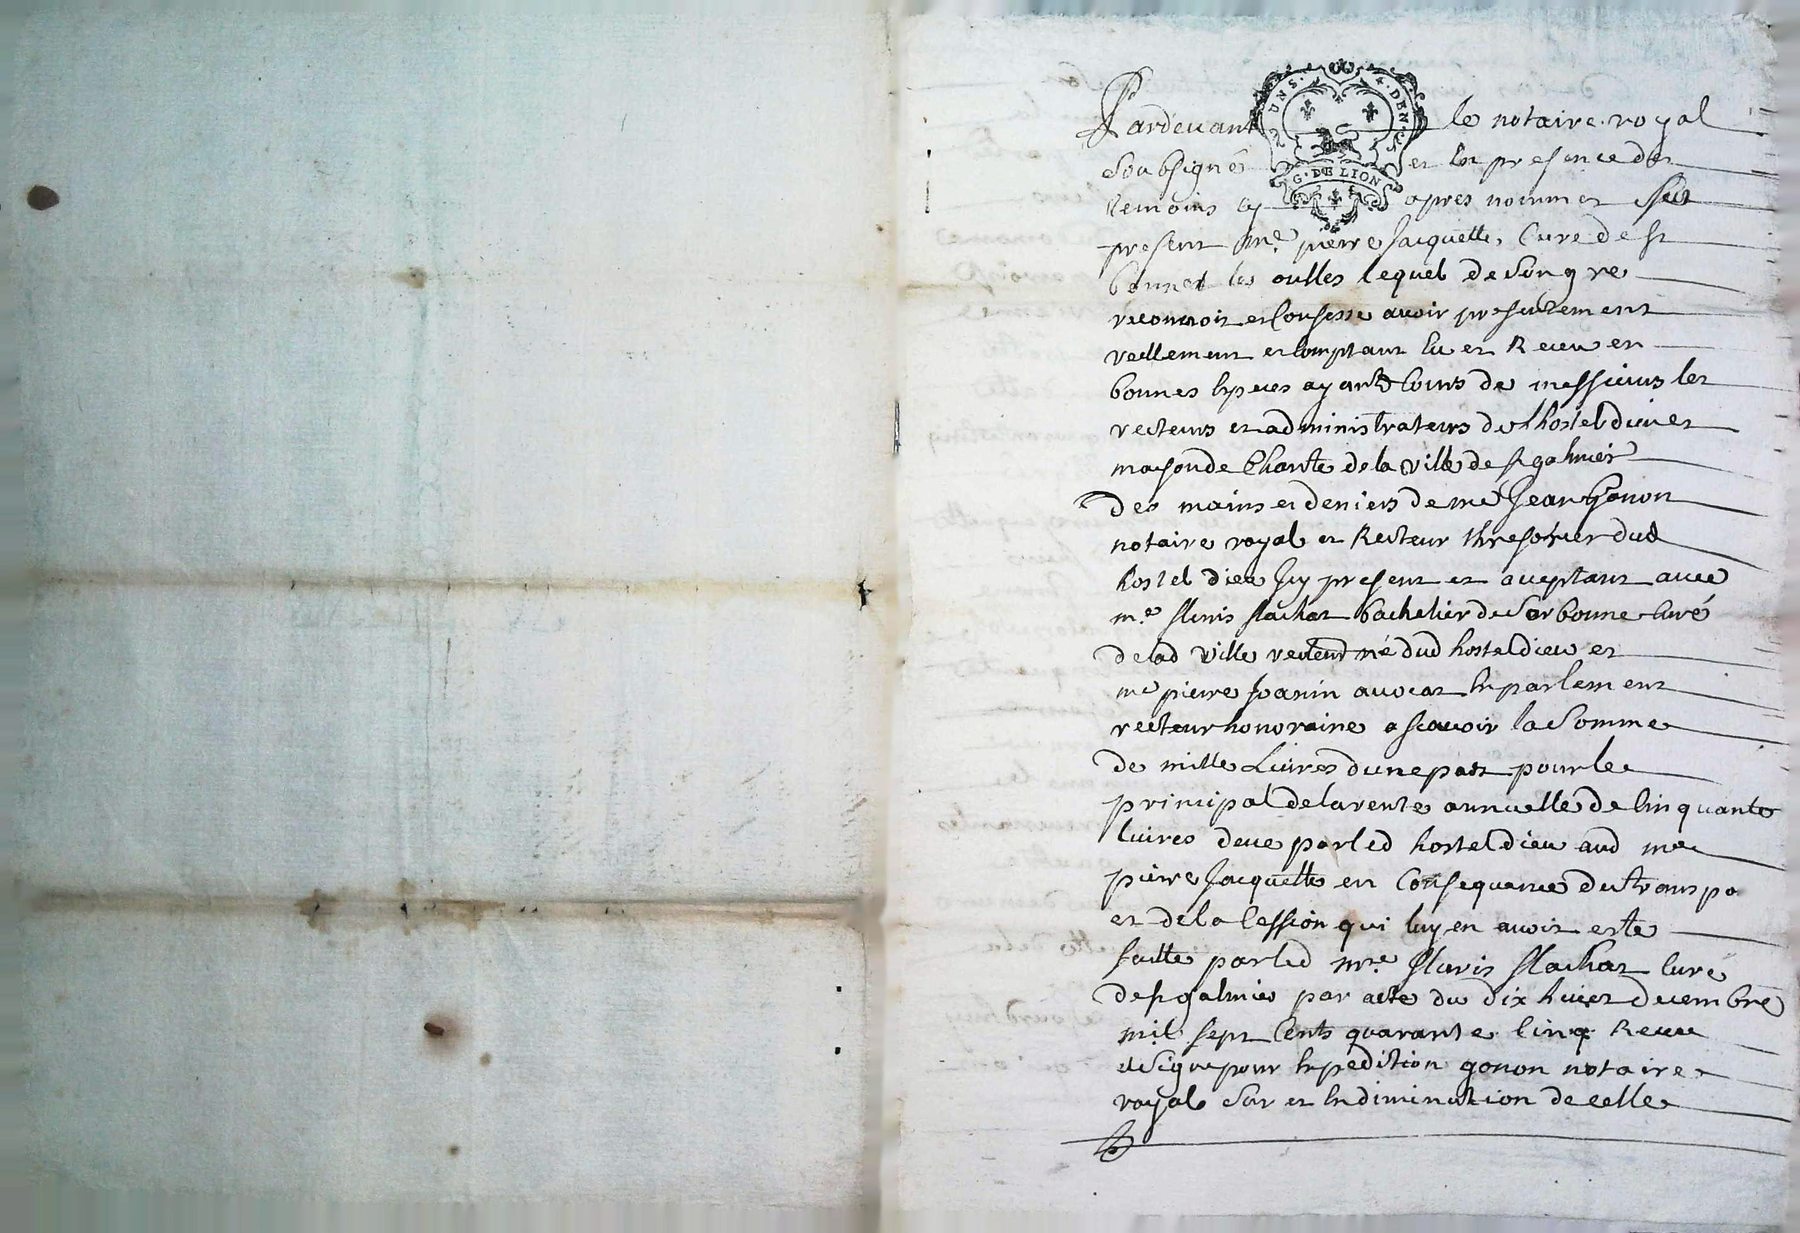 Pardevant le notaire royal
Soubsigné et en presence des
temoins cy apres nommes fut
present Mre. pierre Jacquette, Curé de st
bonnet les oulles lequel de Son gre
reconnoit et Confesse avoir presentement
reellement et Comptant eu et Receu en
bonnes Especes ayant Cours de messieurs les
recteurs et administrateurs de lhosteldieu et
mayson de Charite de la ville de st galmier
Des mains et deniers de me Jean Gonon
notaire royal et Recteur thresorier dud
hostel dieu Icy present et aceptant avec
me. fleuris flachat bachelier de Sorbonne Curé
de lad ville recteur né dud hosteldieu et
me pierre Joanin avocat En parlement
recteur honoraire a scavoir la Somme
de mille Livres dune part pour le
principal de la rente annuelle de Cinquante
livres deue par led hosteldieu aud me
pierre Jacquette en Consequance du transpo
et de la Cession qui luy en avoit esté
faitte par led mre. fleuris flachat Curé
de st galmier par acte du dix huict decembre
mil sept Cents quarante Cinq Receu
et Signé pour Expedition gonon notaire
royal Sur et En diminution de celle
UNS. DEN.
G. DE LION